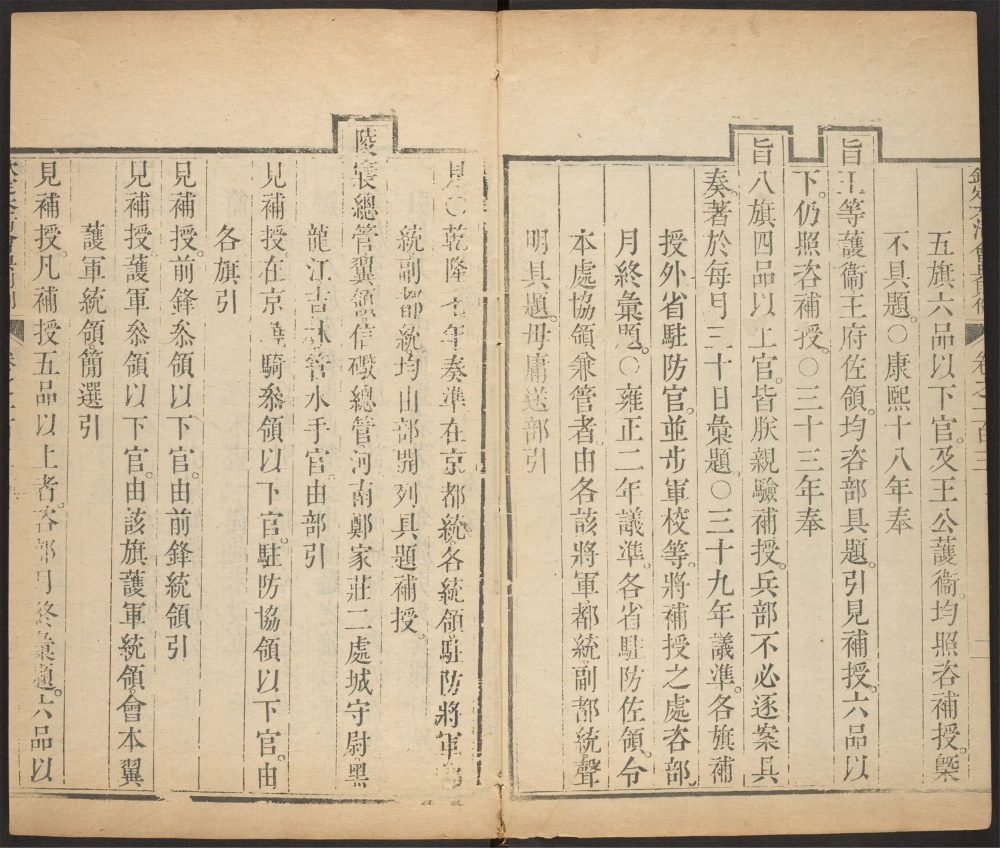 欽定大清會典則例 卷之一百三
五旗六品以下官。及王公護衞。均照咨補授。槩
不具題。○康熙十八年奉
旨王等護衞王府佐領。均咨部具題。引見補授。六品以
下。仍照咨補授。○三十三年奉
旨八旗四品以上官。皆朕親驗補授。兵部不必逐案具
奏。著於每月三十日彙題。○三十九年議準。各旗補
授外省駐防官。並步軍校等。將補授之處咨部
月終彙題。○雍正二年議準。各省駐防佐領。令
本處協領兼管者。由各該將軍都統副都統聲
明具題。毋庸送部引
見○乾隆七年奏準在京都統。各統領駐防將軍都
統副都統均由部開列具題補授。
陵寢總管翼領信礮總管河南鄭家莊二處城守尉黑
龍江吉林管水手官。由部引
見補授。在京驍騎叅領以下官。駐防協領以下官。由
各旗引
見補授。前鋒叅領以下官。由前鋒統領引
見補授。護軍叅領以下官。由該旗護軍統領。會本翼
護軍統領。簡選引
見補授。凡補授五品以上者。咨部月終彙題。六品以